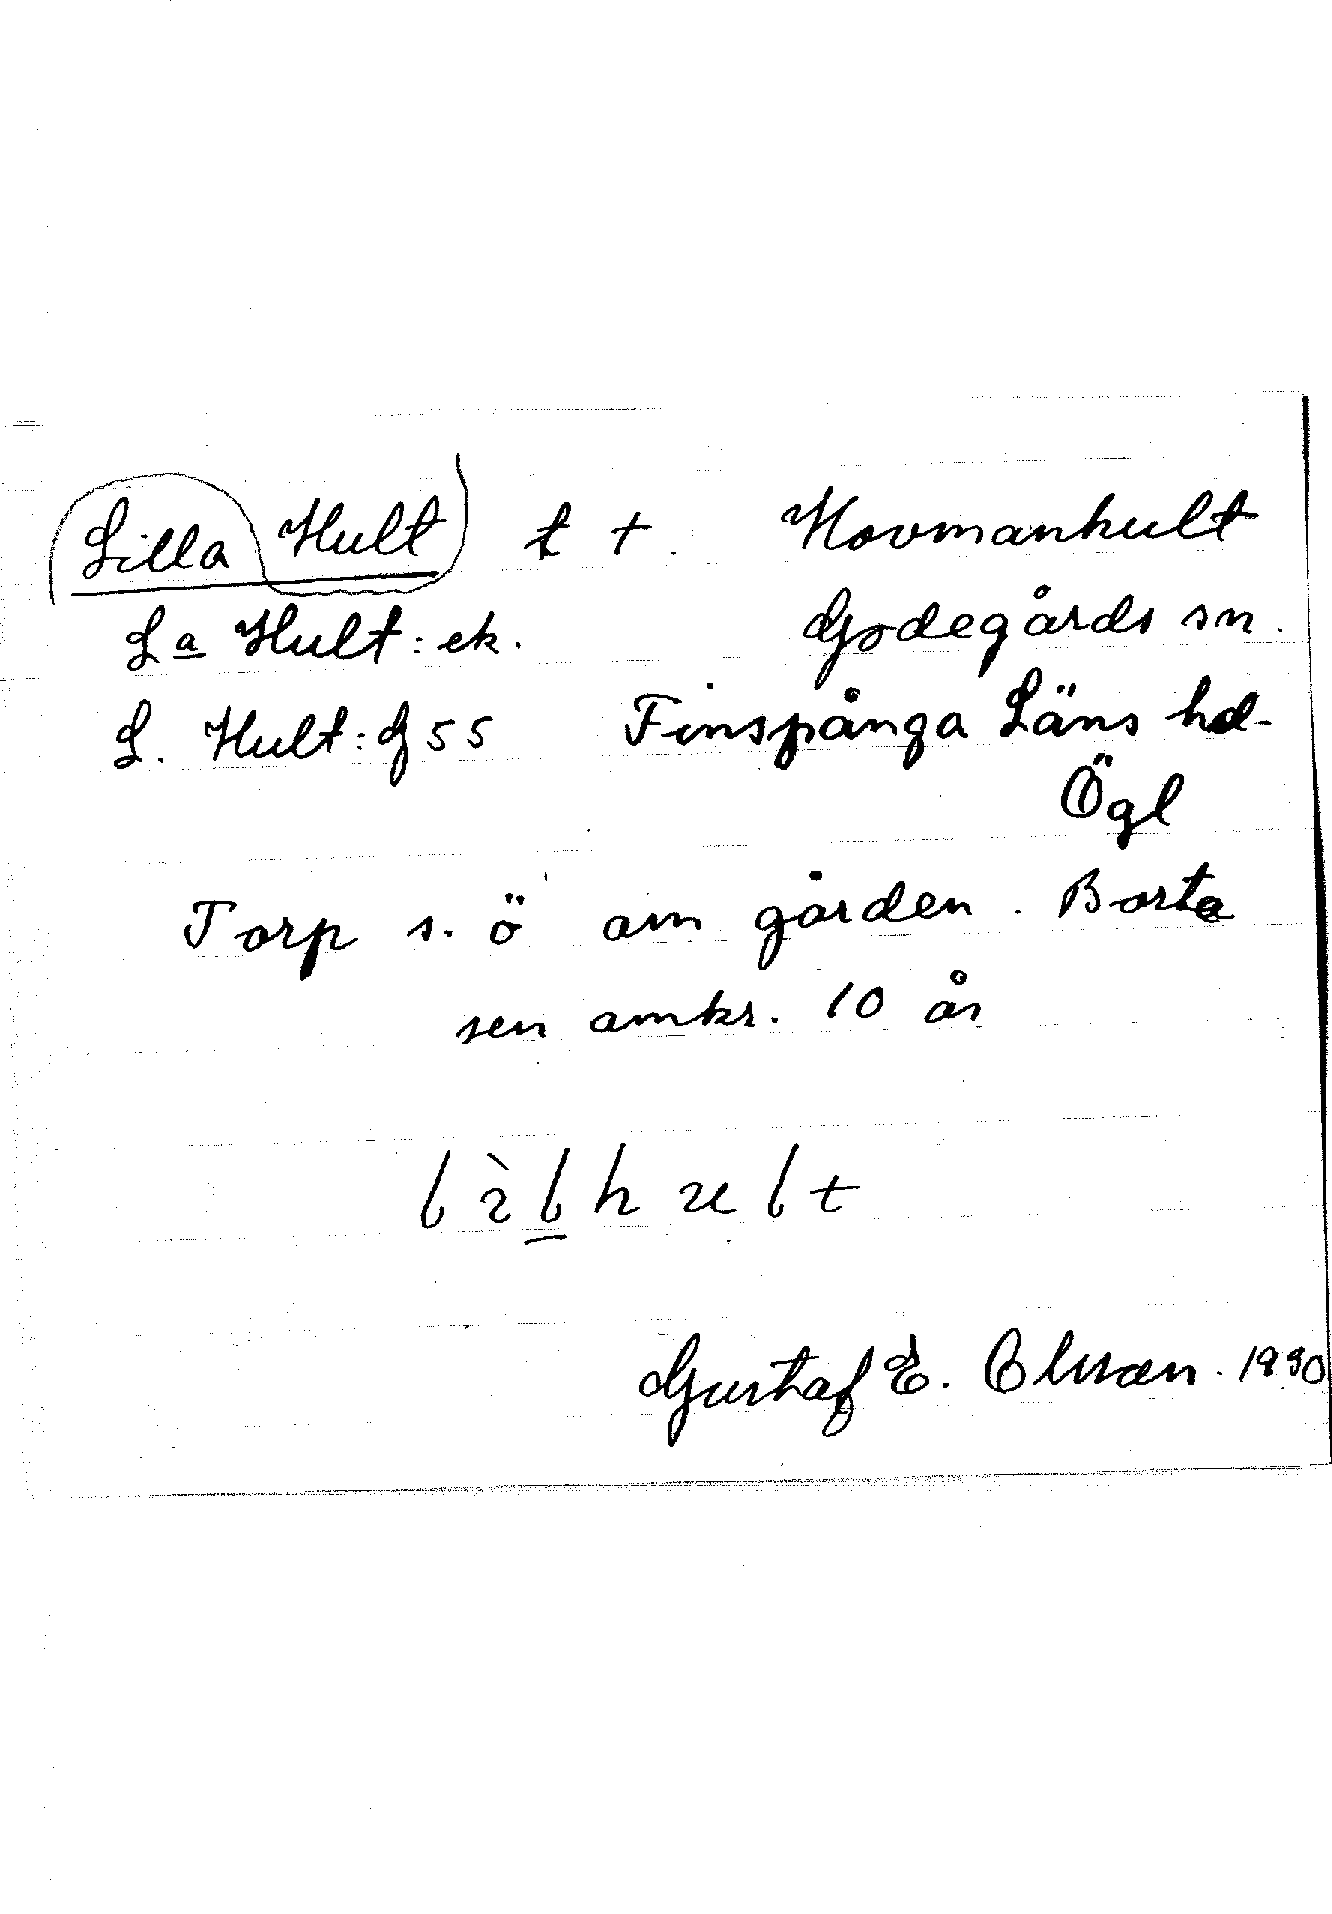 Lilla Hult t + Hovmanhult
La Hult: ek. Godegårds sn.
L. Hult: G 55 Finspånga Läns hd
Ögl
Torp s. ö om gården. Borta
sen omkr. 10 år
Gustaf E. Olsson. 1930